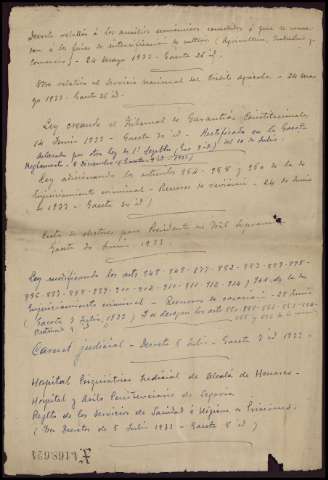 Decreto relativo à los auxilios económicos concedidos á que se
con á los fines de intensificación de cultivos (Agricultura, Industria y
Comercio) - 24 Mayo 1933 - Gaceta 26 id.
Otro relativo al Servicio nacional del Crédito agrícola - 24 Ma-
yo 1933 - Gaceta 26 id.
Ley creando el Tribunal de Garantías Constitucionales
14 Junio 1933 - Gaceta 30 id. Rectificada en la Gaceta
aclarada por otra Ley de 1º Septbre ( 9 id) del 10 de Julio
Reglamento - 8 Diciembre (Gaceta 9 id - 1933)
Ley adicionando los artículos 954 - 958 y 960 de la de
Enjuiciamiento criminal - Recurso de revisión - 24 de Junio
de 1933 - Gaceta 30 id)
de electores para Presidente del Trib. Supremo
Gaceta 30 Junio 1933.
Ley modificando los arts 748 - 849 - 877 - 882 - 893 - 893 - 895 -
896 - 897 - 898 - 899 - 901 - 902 - 910 - 911 - 912 - 914 y de la de
Enjuiciamiento criminal - Recurso de casación - 28 Junio
(Gaceta 7 Julio 1933) Y se derogan los arts
Carnet judicial - Decreto 5 Julio - Gaceta 7 id 1933.
Hospital Psiquiátrico Judicial de Alcalá de Henares -
Hospital y Asilo Penitenciario de Segovia
Reglto de los Servicios de Sanidad é Higiene en Prisiones.
(Dos Decretos de 5 Julio 1933 - Gaceta 8 id)